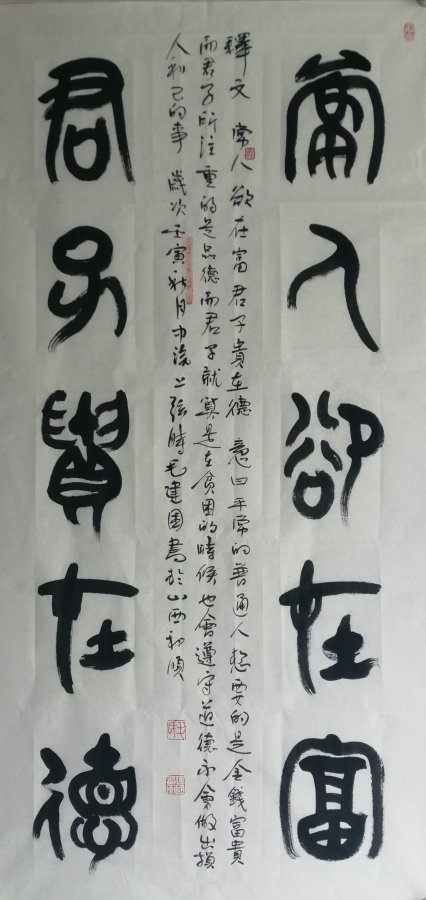 常人欲在富
釋文 常人欲在富 君子貴在德 意曰 平常的普通人想要的是金錢富貴
而君子所注重的是品德而君子就算是在貧困的時候也會遵守道德不會做出損
人利己的事 歲次壬寅秋月中浣上弦時毛建國書於山西和順
君子貴在德